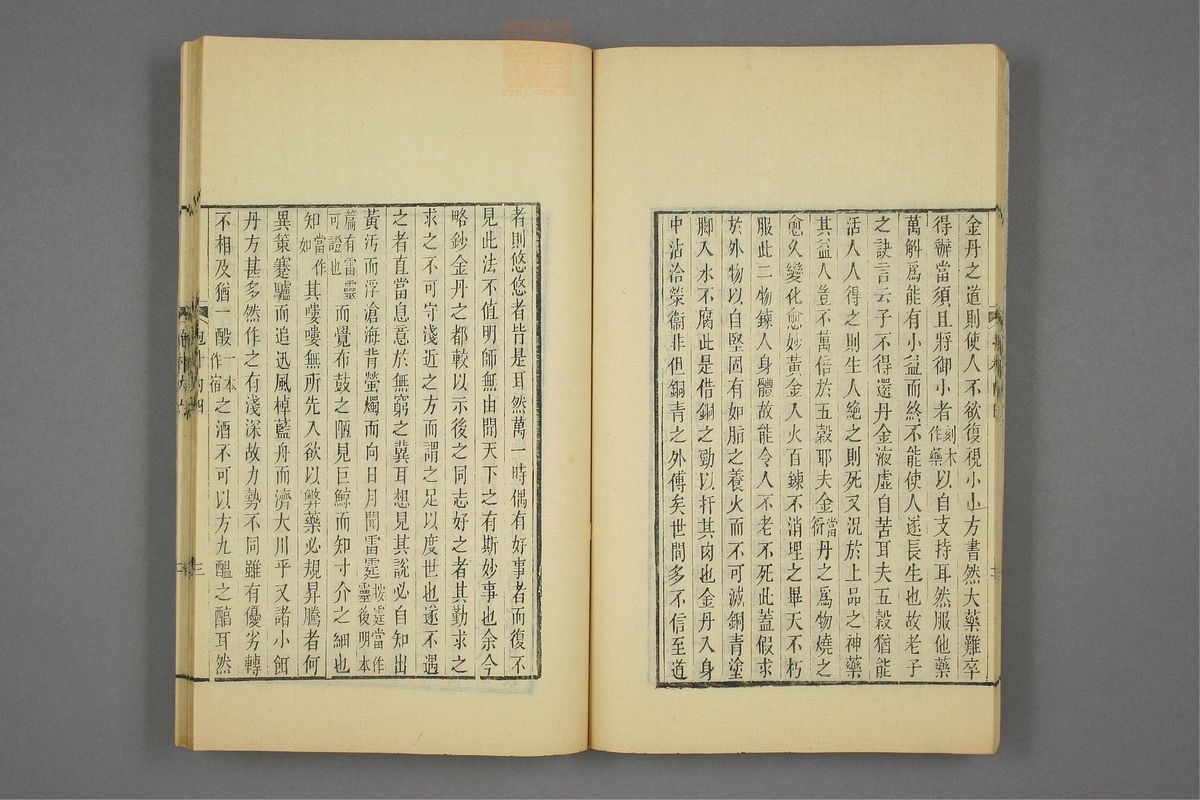 金丹之道則使人不欲復視小小方書然大藥難卒
得辦當須且將御小者刻本作藥以自支持耳然服他藥
萬斛爲能有小益而終不能使人遂長生也故老子
之訣言云子不得還丹金液虛自苦耳夫五穀猶能
活人人得之則生人絕之則死又況於上品之神藥
其益人豈不萬倍於五穀耶夫金當衍丹之爲物燒之
愈久變化愈妙黃金入火百鍊不消埋之畢天不朽
服此二物鍊人身體故能令人不老不死此蓋假求
於外物以自堅固有如脂之養火而不可滅銅青塗
腳入水不腐此是借銅之勁以扞其肉也金丹入身
中沾洽榮衞非但銅青之外傅矣世間多不信至道
者則悠悠者皆是耳然萬一時偶有好事者而復不
見此法不值明師無由聞天下之有斯妙事也余今
略鈔金丹之都較以示後之同志好之者其勤求之
求之不可守淺近之方而謂之足以度世也遂不遇
之者直當息意於無窮之冀耳想見其說必自知出
黃汙而浮滄海背螢燭而向日月聞雷霆按霆當作靈後明本
篇有雷靈可證也而覺布鼓之陋見巨鯨而知寸介之細也
知當作如其嘍嘍無所先入欲以弊藥必規昇騰者何
異策蹇驢而追迅風棹藍舟而濟大川乎又諸小餌
丹方甚多然作之有淺深故力勢不同雖有優劣轉
不相及猶一酘一本作宿之酒不可以方九醞之醇耳然